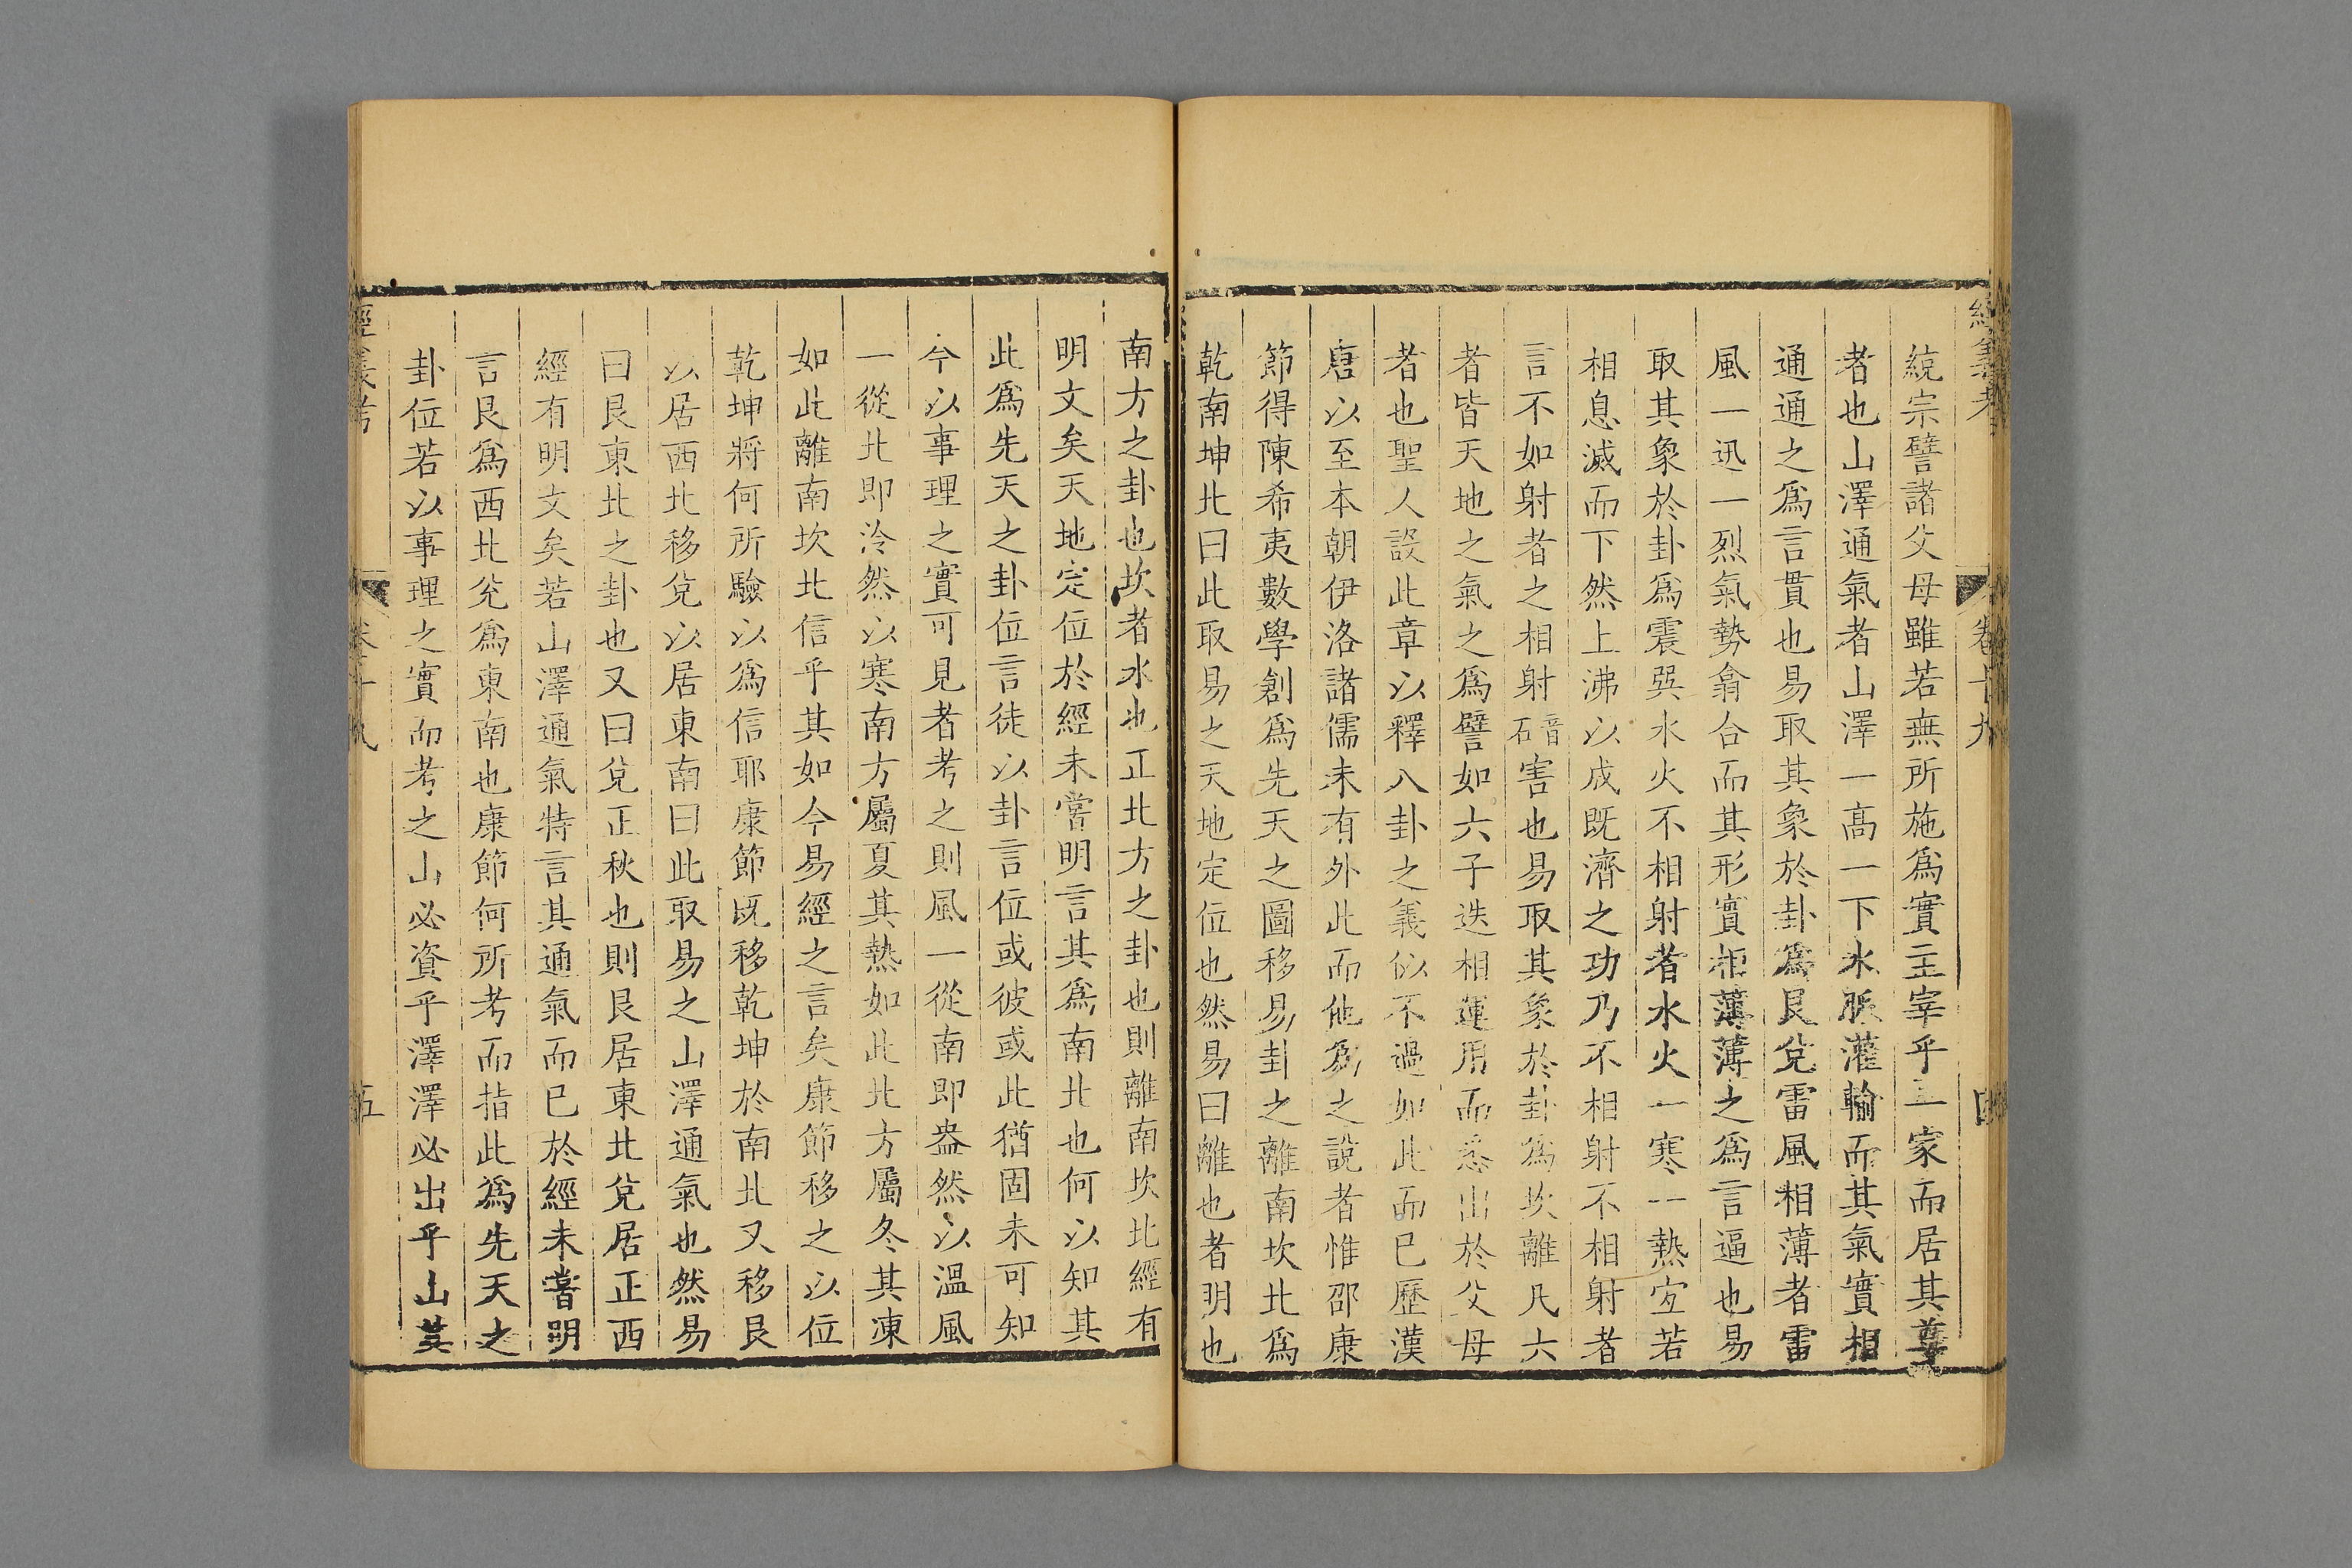 經義考
卷十九
四
統宗譬諸父母雖若無所施爲實主宰乎一家而居其尊
者也山澤通氣者山澤一高一下水脈灌輸而其氣實相
通通之爲言貫也易取其象於卦爲艮兌雷風相薄者雷
風一迅一烈氣勢翕合而其形實相薄薄之爲言逼也易
取其象於卦爲震巽水火不相射者水火一寒一熱宐若
相息滅而下然上沸以成既濟之功乃不相射不相射者
言不如射者之相射音石害也易取其象於卦爲坎離凡六
者皆天地之氣之爲譬如六子迭相運用而悉出於父母
者也聖人設此章以釋八卦之義似不過如此而已歷漢
唐以至本朝伊洛諸儒未有外此而他爲之說者惟邵康
節得陳希夷數學創爲先天之圖移易卦之離南坎北爲
乾南坤北曰此取易之天地定位也然易曰離也者明也
南方之卦也坎者水也正北方之卦也則離南坎北經有
明文矣天地定位於經未嘗明言其爲南北也何以知其
此爲先天之卦位言徒以卦言位或彼或此猶固未可知
今以事理之實可見者考之則風一從南即盎然以溫風
一從北即泠然以寒南方屬夏其熱如此北方屬冬其凍
如此離南坎北信乎其如今易經之言矣康節移之以位
乾坤將何所驗以爲信耶康節既移乾坤於南北又移艮
以居西北移兌以居東南曰此取易之山澤通氣也然易
曰艮東北之卦也又曰兌正秋也則艮居東北兌居正西
經有明文矣若山澤通氣特言其通氣而已於經未嘗明
言艮爲西北兌爲東南也康節何所考而指此爲先天之
卦位若以事理之實而考之山必資乎澤澤必出乎山其
經義考
五